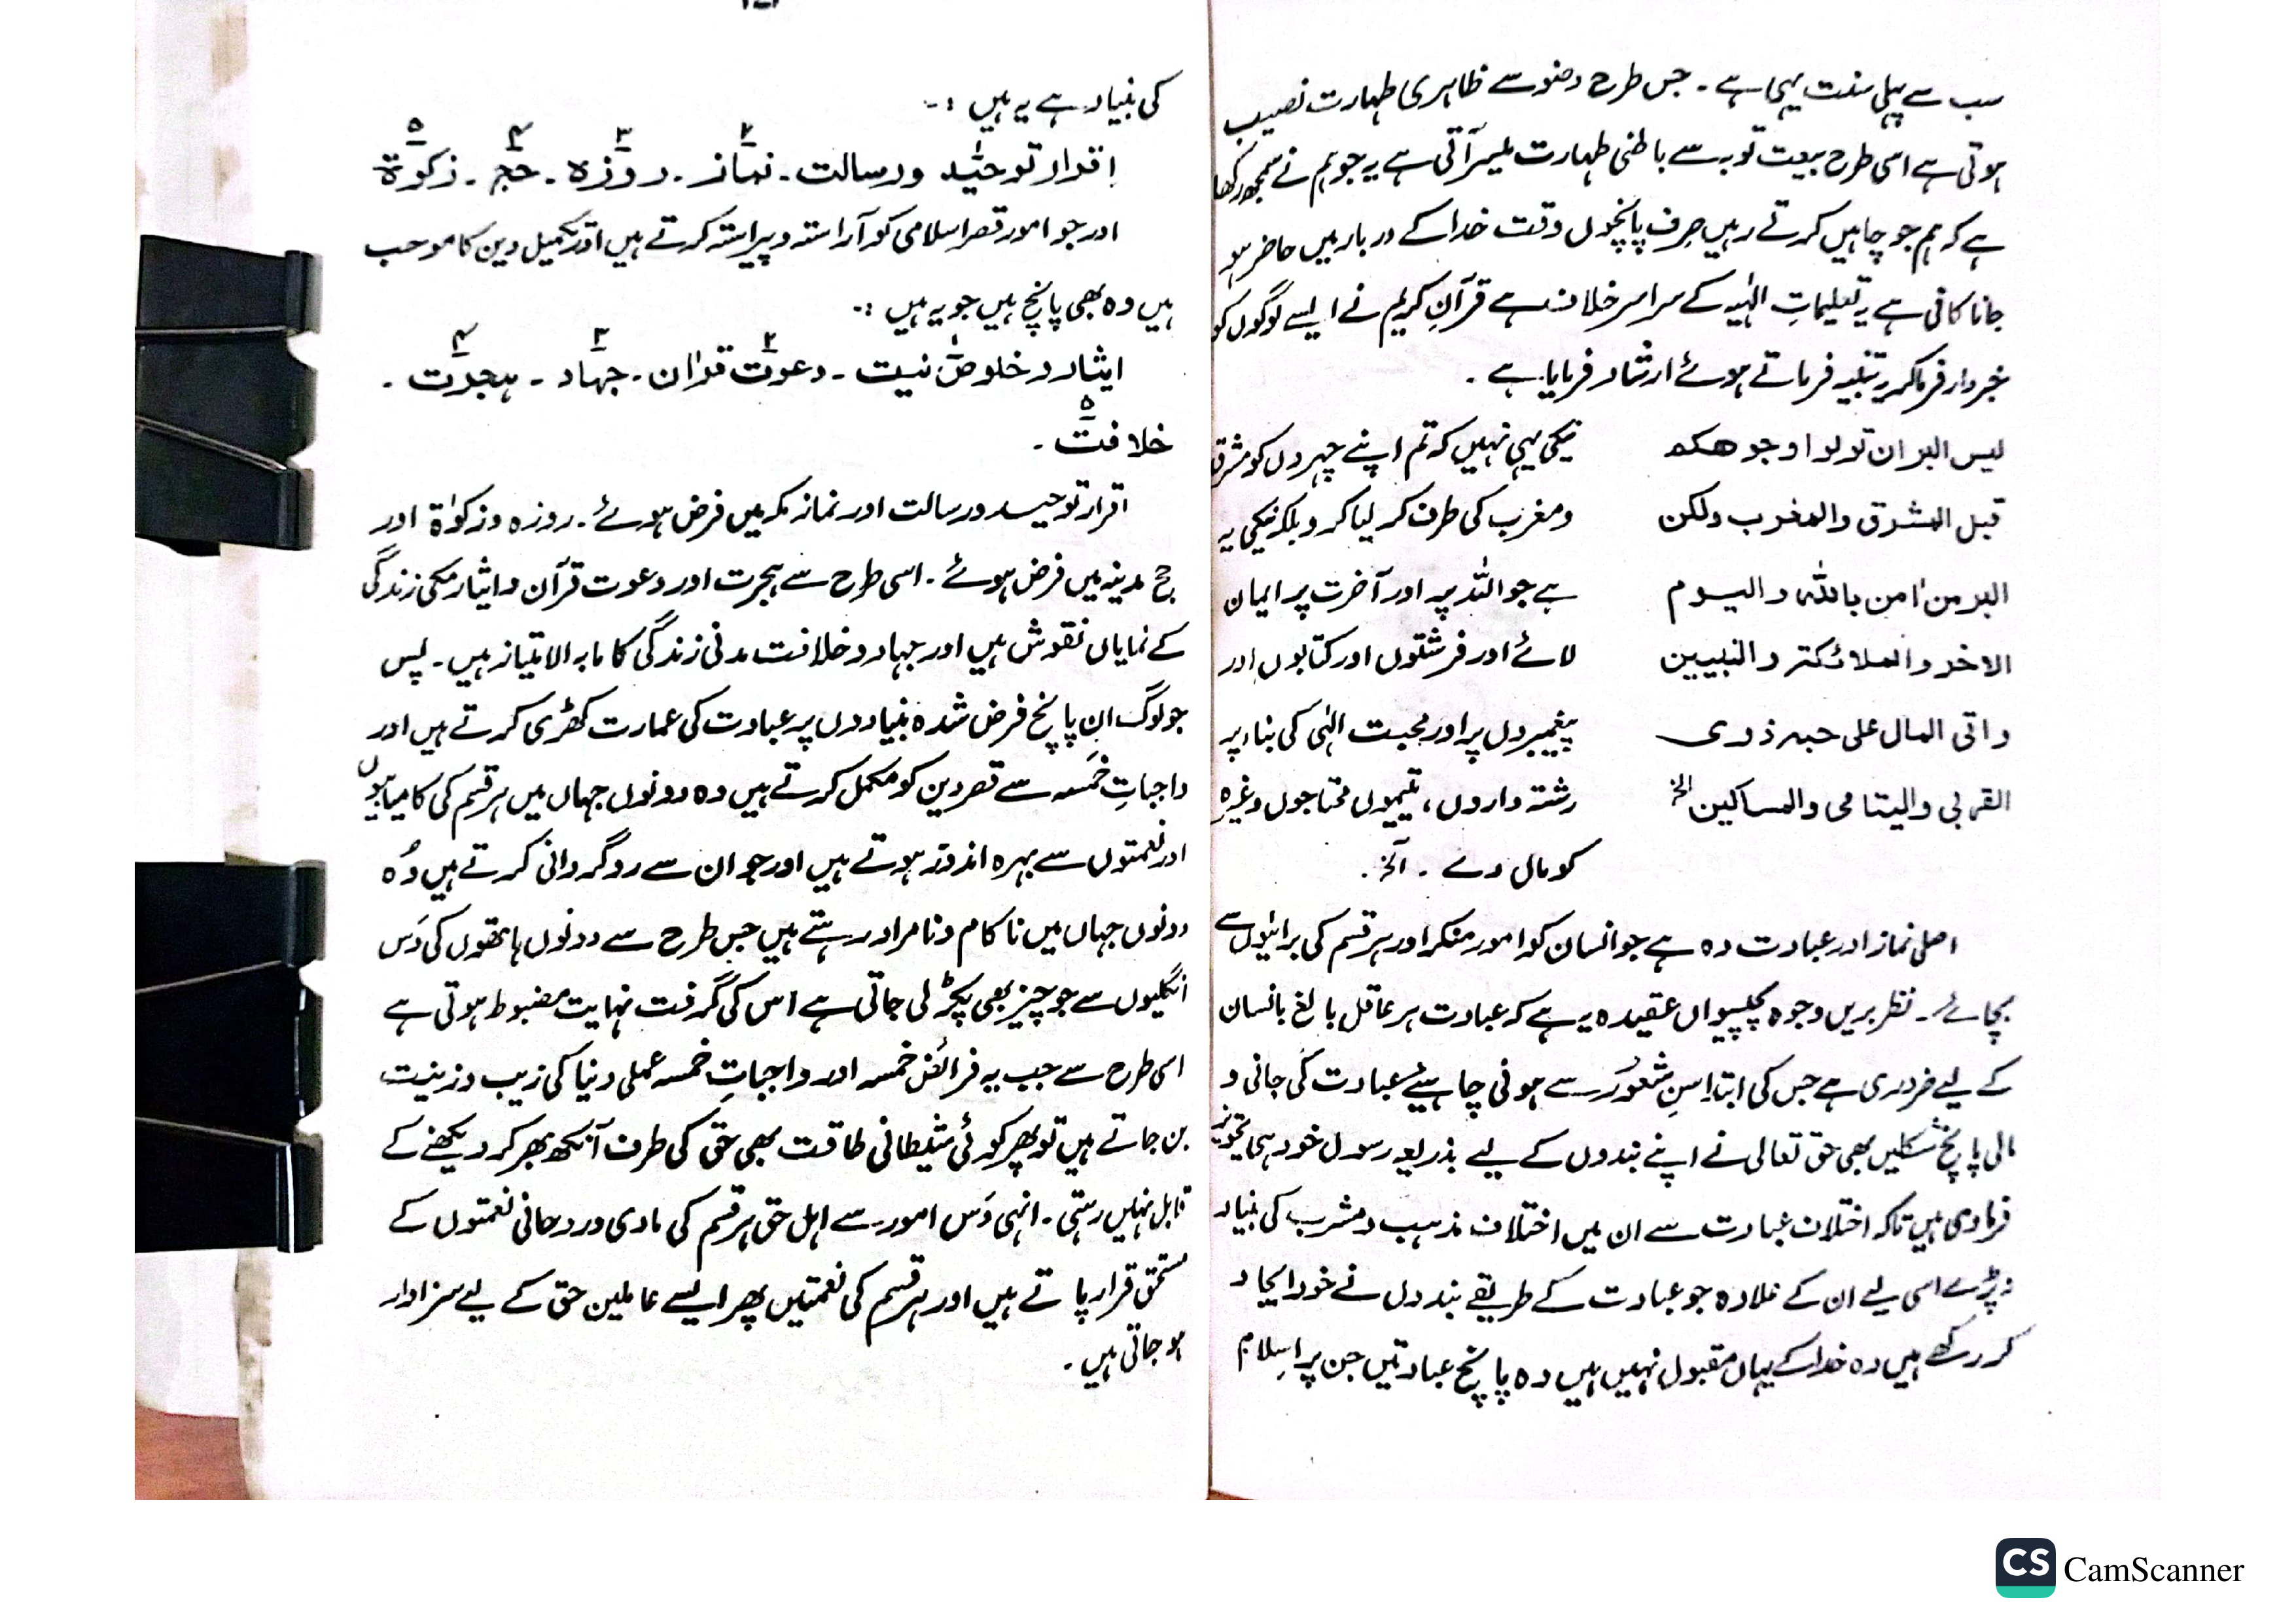 سب سے پہلی سنت یہی ہے ۔ جس طرح وضو سے ظاہری طہارت نصیب
ہوتی ہے اسی طرح بیعت توبہ سے باطنی طہارت میسر آتی ہے یہ جو ہم نے سمجھ رکھا
ہے کہ ہم جو چاہیں کرتے رہیں صرف پانچوں وقت خدا کے دربار میں حاضر ہو
جانا کافی ہے یہ تعلیماتِ الٰہیہ کے سراسر خلاف ہے قرآنِ کریم نے ایسے لوگوں کو
خبردار فرما کر تنبیہ فرماتے ہوئے ارشاد فرمایا ہے ۔
لیس البر ان تولوا وجوھکم
قبل المشرق والمغرب ولکن
البر من اٰمن باللّٰہ والیوم
الاخر والملائکتہ والنبیین
واتی المال علی حبہ ذوی
القربی والیتامی والمساکین الخ
نیکی یہی نہیں کہ تم اپنے چہروں کو مشرق
و مغرب کی طرف کر لیا کرو بلکہ نیکی یہ
ہے جو اللّٰہ پر اور آخرت پر ایمان
لائے اور فرشتوں اور کتابوں اور
پیغمبروں پر اور محبت الٰہی کی بناء پر
رشتہ داروں ، یتیموں محتاجوں وغیرہ
کو مال دے ۔ الخ ۔
اصلی نماز اور عبادت وہ ہے جو انسان کو امور منکر اور ہر قسم کی برائیوں سے
بچائے ۔ نظر بریں وجوہ پچیسواں عقیدہ یہ ہے کہ عبادت ہر عاقل بالغ انسان
کے لیے ضروری ہے جس کی ابتدا سنِ شعور سے ہونی چاہیئے عبادت کی جانی و
مالی پانچ شکلیں بھی حق تعالی نے اپنے بندوں کے لیے بذریعہ رسول خود ہی تجویز
فرما دی ہیں تاکہ اختلاف عبادت سے ان میں اختلاف مذہب و مشرب کی بنیاد
نہ پڑے اسی لیے ان کے علاوہ جو عبادت کے طریقے بندوں نے خود ایجاد
کر رکھے ہیں وہ خدا کے یہاں مقبول نہیں ہیں وہ پانچ عبادتیں جن پر اسلام
کی بنیاد ہے یہ ہیں :-
اقرار توحید ورسالت ۔ نماز ۔ روزہ ۔ حج ۔ زکوٰۃ
۱ ۲ ۳ ۴ ۵
اور جو امور قصر اسلامی کو آراستہ و پیراستہ کرتے ہیں اور تکمیل دین کا موجب
ہیں وہ بھی پانچ ہیں جو یہ ہیں :-
ایثار و خلوص نیت ۔ دعوت قراٰن ۔ جہاد ۔ ہجرت ۔
۱ ۲ ۳ ۴
۵
خلافت ۔
اقرار توحید ورسالت اور نماز مکہ میں فرض ہوئے ۔ روزہ و زکوٰۃ اور
حج مدینہ میں فرض ہوئے ۔ اسی طرح سے ہجرت اور دعوت قرآن و ایثار مکی زندگی
کے نمایاں نقوش ہیں اور جہاد و خلافت مدنی زندگی کا مابہ الامتیاز ہیں ۔ پس
جو لوگ ان پانچ فرض شدہ بنیادوں پر عبادت کی عمارت کھڑی کرتے ہیں اور
واجباتِ خمسہ سے قصر دین کو مکمل کرتے ہیں وہ دونوں جہاں میں ہر قسم کی کامیابیوں
اور نعمتوں سے بہرہ اندوز ہوتے ہیں اور جو ان سے روگردانی کرتے ہیں وُہ
دونوں جہاں میں ناکام و نامراد رہتے ہیں جس طرح سے دونوں ہاتھوں کی دَس
انگلیوں سے جو چیز بھی پکڑ لی جاتی ہے اس کی گرفت نہایت مضبوط ہوتی ہے
اسی طرح سے جب یہ فرائض خمسہ اور واجباتِ خمسہ عملی دنیا کی زیب و زینت
بن جاتے ہیں تو پھر کوئی شیطانی طاقت بھی حق کی طرف آنکھ بھر کر دیکھنے کے
قابل نہیں رہتی ۔ انہی دَس امور سے اہل حق ہر قسم کی مادی و روحانی نعمتوں کے
مستحق قرار پاتے ہیں اور ہر قسم کی نعمتیں پھر ایسے عاملین حق کے لیے سزاوار
ہو جاتی ہیں ۔
CS CamScanner